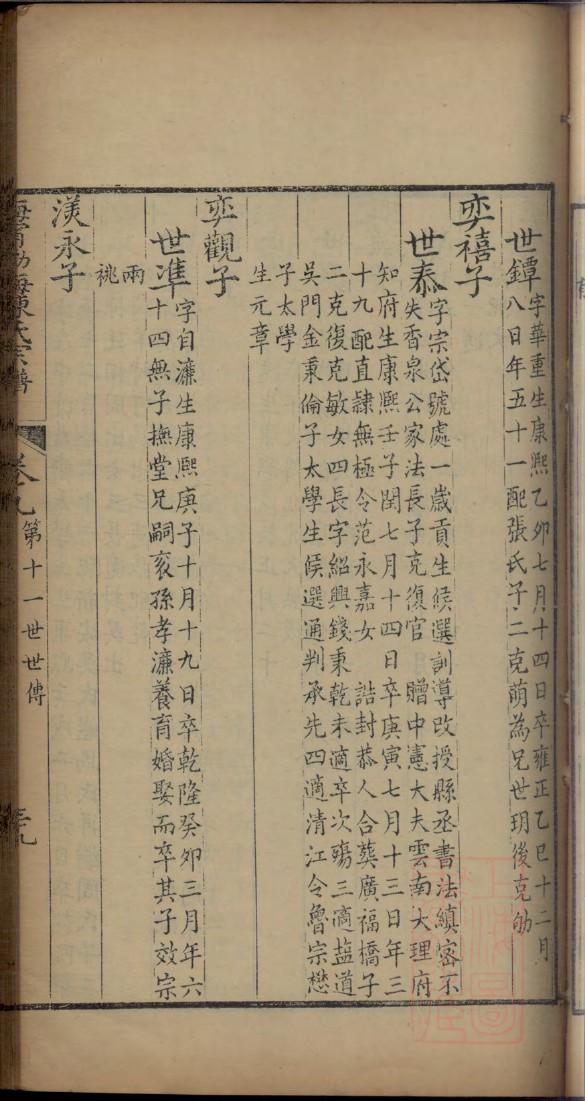 世鐔
字華重生康熙乙卯七月十四日卒雍正乙巳十二月
八日年五十一配張氏子二克萌為兄世玥後克劬
奕禧子
世泰
字宗岱號處一歲貢生候選訓導改授縣丞書法縝密不
失香泉公家法長子克復官 贈中憲大夫雲南大理府
知府生康熙壬子閏七月十四日卒庚寅七月十三日年三
十九配直隸無極令范永嘉女 誥封恭人合葬廣福橋子
二克復克敏女四長字紹興錢秉乾未適卒次殤三適盐道
吳門金秉倫子太學生候選通判承先四適清江令魯宗懋
子太學
生元章
奕觀子
世準
字自濂生康熙庚子十月十九日卒乾隆癸卯三月年六
十四無子撫堂兄嗣亥孫孝濂養育婚娶而卒其子效宗
兩
祧
渼永子
海寧渤海陳氏宗譜 卷九 第十一世世傳 三九